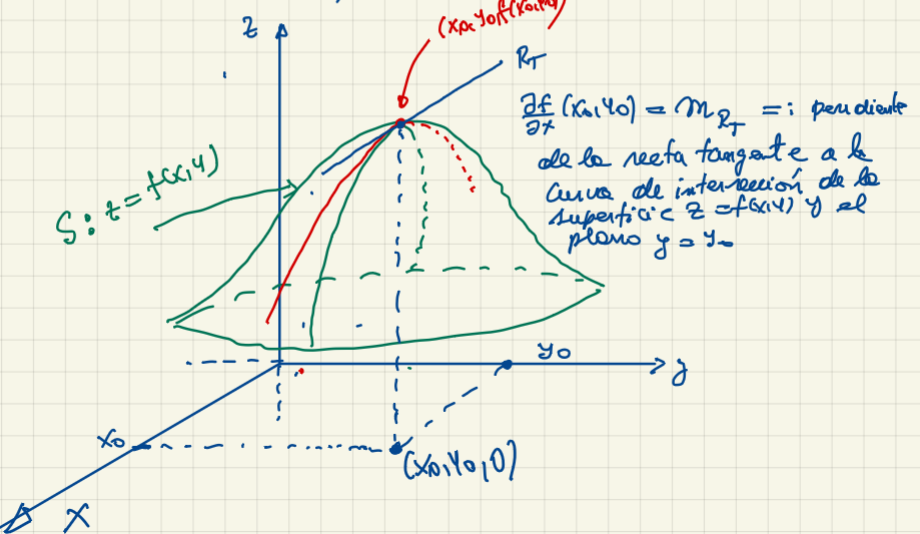 Z
(x₀,y₀,f(x₀,y₀))
R_T
∂f/∂x (x₀,y₀) = m_{R_T} =: pendiente
de la recta tangente a la
curva de intersección de la
superficie Z = f(x,y) y el
plano y = y₀
S: z = f(x,y)
y₀
y
x₀
(x₀,y₀,0)
X